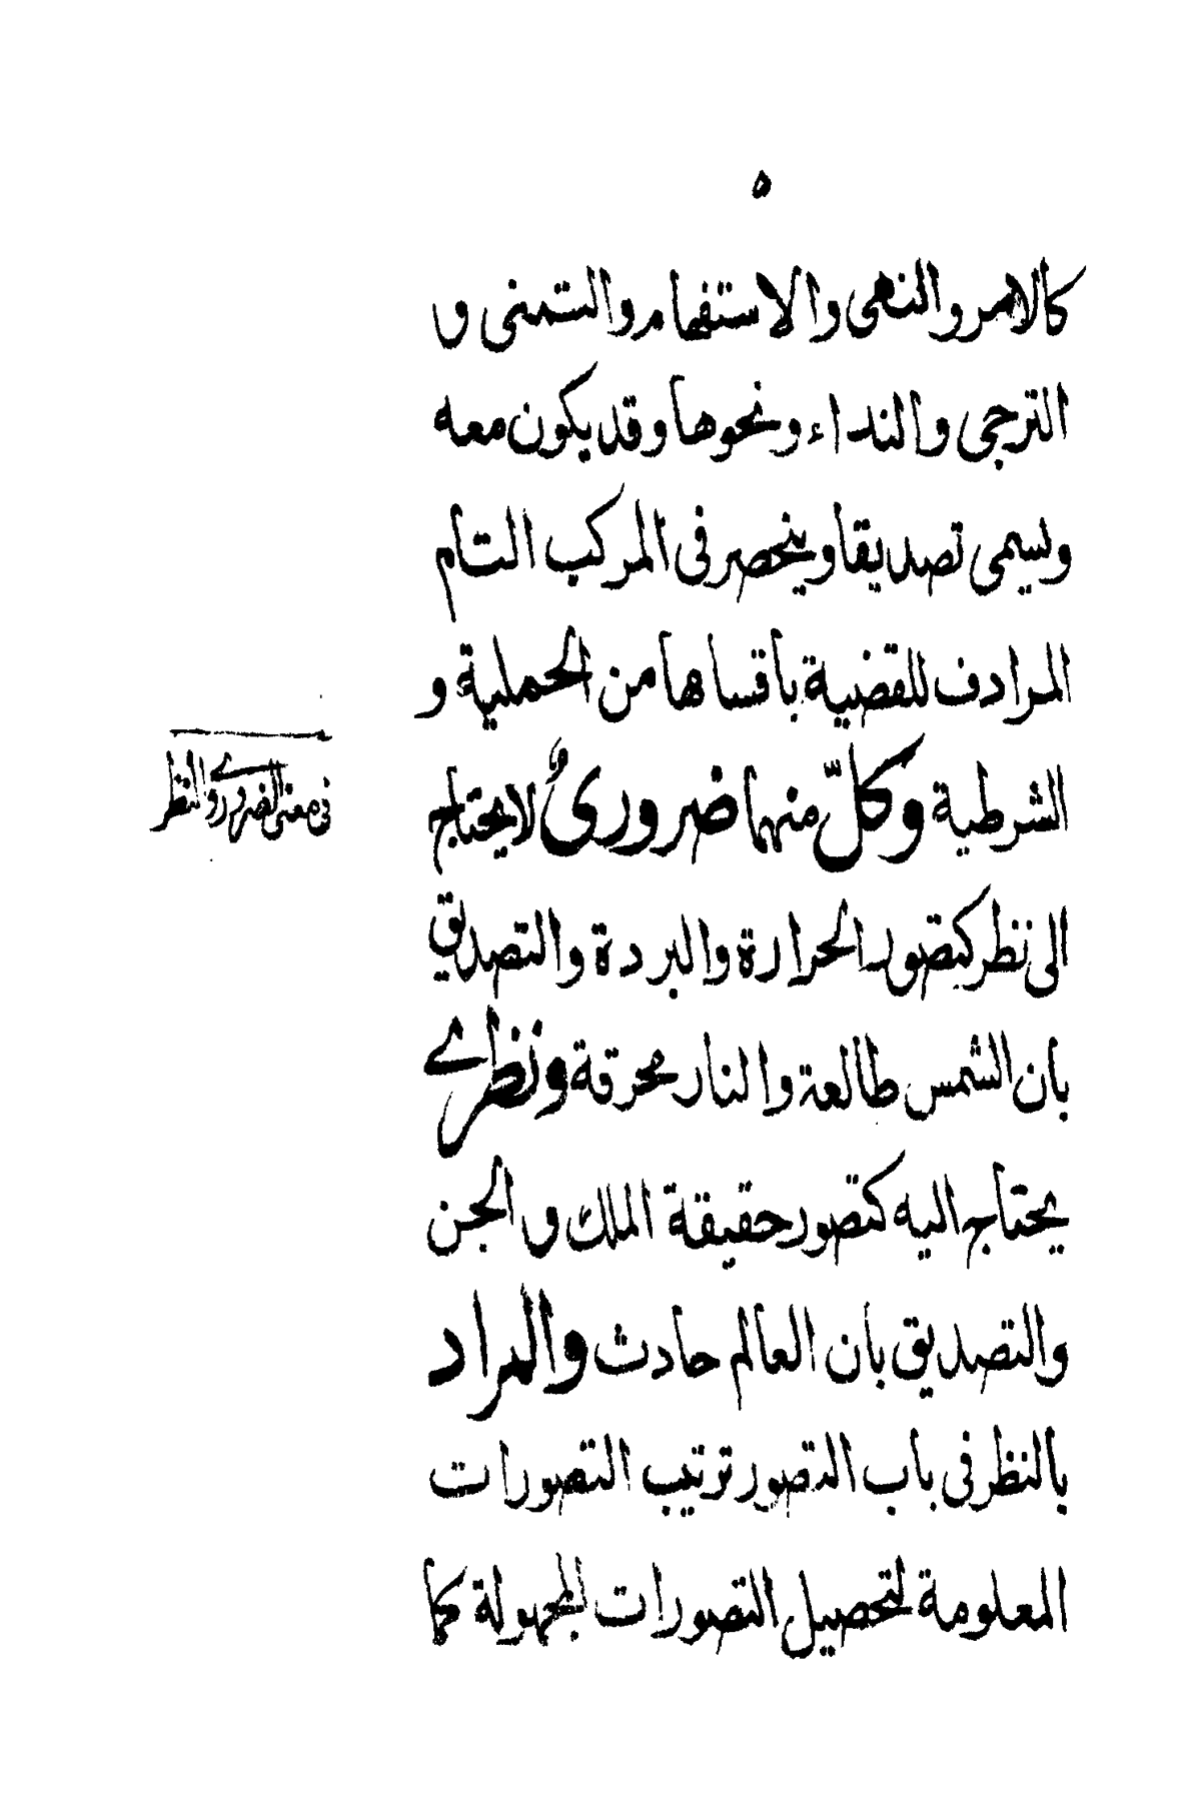 ٥
كالامر والنهى والاستفهام والتمنى و
الترجى والنداء ونحوها وقد يكون معه
ويسمى تصديقا وينحصر فى المركب التام
المرادف للقضية بأقساها من الحملية و
الشرطية وكلّ منهما ضرورىٌ لا يحتاج
فى معنى الضرورے والنظر
الى نظر كتصور الحرارة والبردة والتصديق
بان الشمس طالعة والنار محرقة ونظرے
يحتاج اليه كتصور حقيقة الملك و الجن
والتصديق بأن العالم حادث والمراد
بالنظر فى باب التصور ترتيب التصورات
المعلومة لتحصيل التصورات المجهولة كما